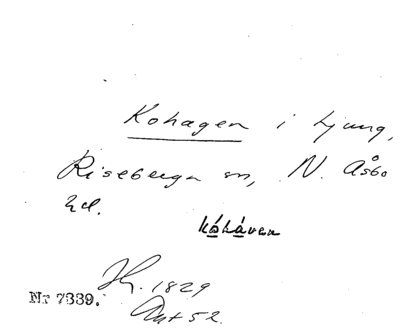 Kohagen i Ljung,
Riseberga sn, N. Åsbo
hd.
kåhåven
H. 1829
Ant 52.
Nr 7339.